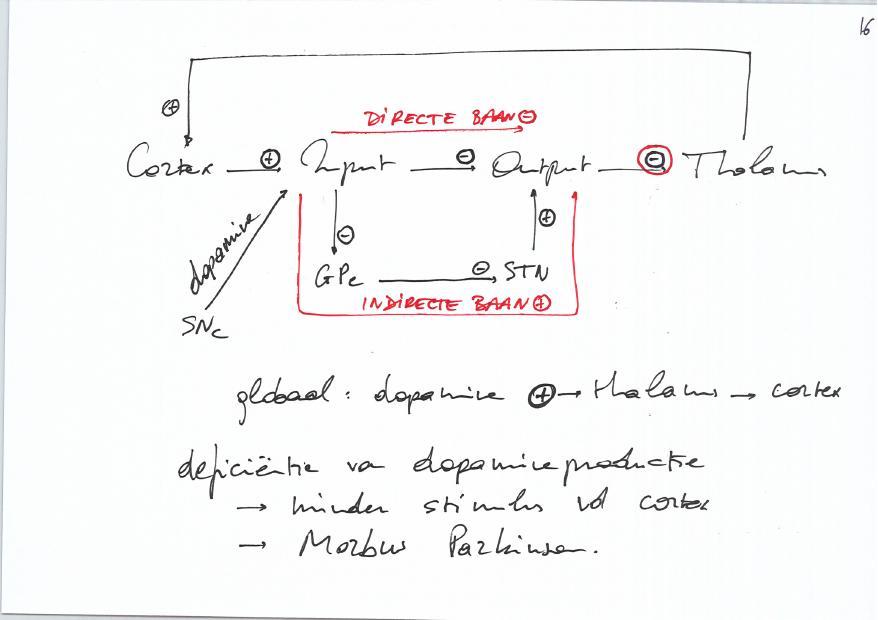 16
⊕
DIRECTE BAAN ⊖
Cortex ⊕ Input ⊖ Output ⊖ Thalamus
dopamine ⊖ ⊕
GPe ⊖ STN
INDIRECTE BAAN ⊕
SNc
globaal : dopamine ⊕→ thalamus → cortex
deficiëntie van dopamineproductie
→ minder stimulus vd cortex
→ Morbus Parkinson.